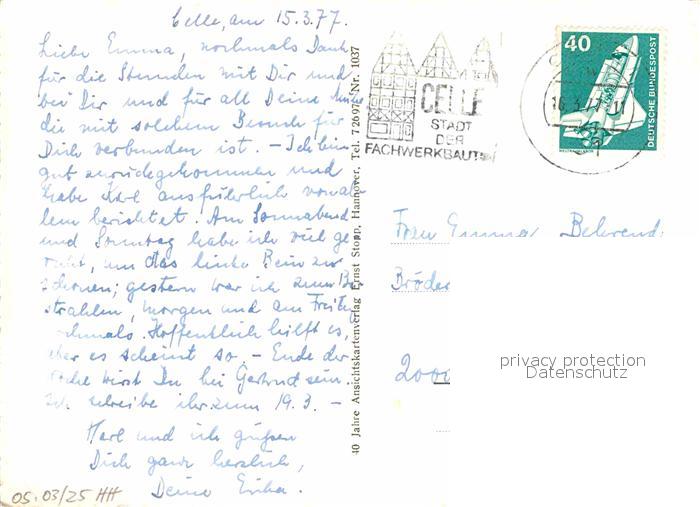 Celle, am 15.3.77.
Liebe Emma, nochmals Dank
für die Stunden mit Dir und
bei Dir und für all Deine Mühe
die mit solchem Besuch für
Dich verbunden ist. – Ich bin
gut zurückgekommen und
habe Karl ausführlich von al-
lem berichtet. Am Sonnabend
und Sonntag habe ich viel ge
ruht, um das linke Bein zu
schonen; gestern war ich zum Be
strahlen, morgen und am Freitag
nochmals. Hoffentlich hilft es,
aber es scheint so. – Ende der
Woche wirst Du bei Gertrud sein.
Ich schreibe ihr zum 19.3. –
Karl und ich grüßen
Dich ganz herzlich,
Deine Erika.
05.03/25 HH
40 Jahre Ansichtskartenverlag Ernst Stopp, Hannover, Tel. 7 26 97 Nr. 1037
CELLE
STADT
DER
FACHWERKBAUT
40
DEUTSCHE BUNDESPOST
Frau Emma Behrend
Bröde
2000
privacy protection
Datenschutz